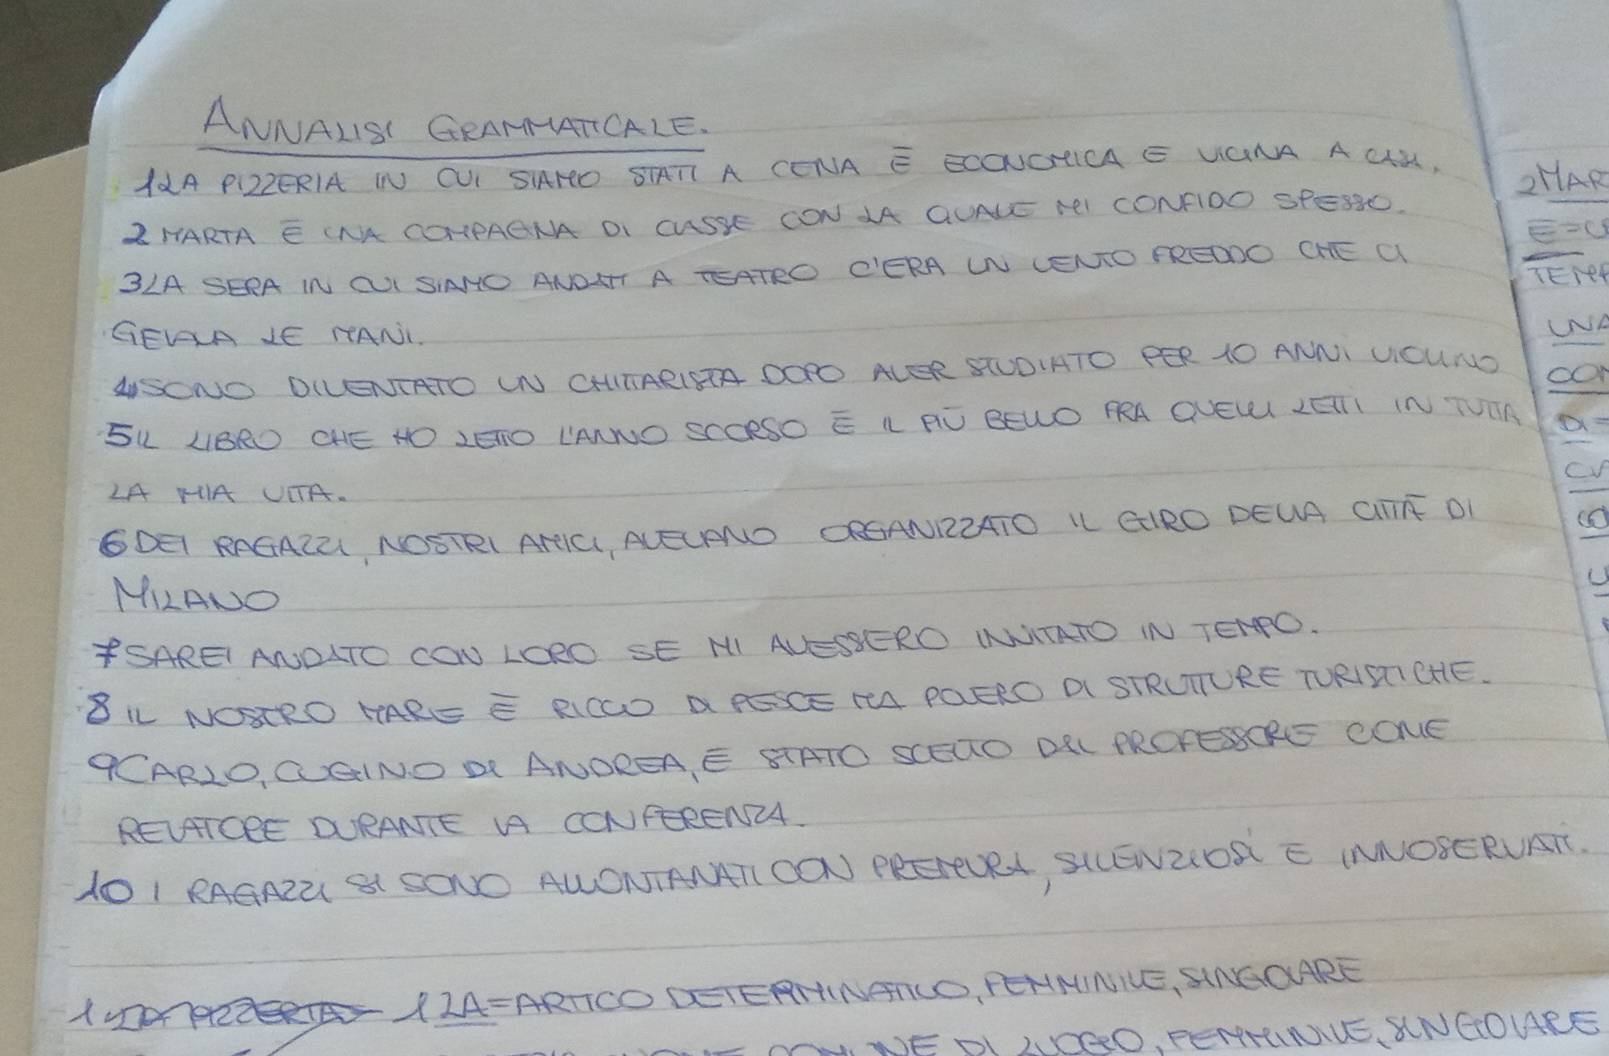 ANNALISI GRAMMATICALE.
1 LA PIZZERIA IN CUI SIAMO STATI A CENA È ECONOMICA E VICINA A CASA.
2 MARTA È UNA COMPAGNA DI CLASSE CON LA QUALE MI CONFIDO SPESSO.
3 LA SERA IN CUI SIAMO ANDATI A TEATRO C'ERA UN VENTO FREDDO CHE CI
GELAVA LE MANI.
4 SONO DIVENTATO UN CHITARRISTA DOPO AVER STUDIATO PER 10 ANNI VIOLINO
5 IL LIBRO CHE HO LETTO L'ANNO SCORSO È IL PIÙ BELLO FRA QUELLI LETTI IN TUTTA
LA MIA VITA.
6 DEI RAGAZZI, NOSTRI AMICI, AVEVANO ORGANIZZATO IL GIRO DELLA CITTÀ DI
MILANO
7 SAREI ANDATO CON LORO SE MI AVESSERO INVITATO IN TEMPO.
8 IL NOSTRO MARE È RICCO DI PESCE MA POVERO DI STRUTTURE TURISTICHE.
9 CARLO, CUGINO DI ANDREA, È STATO SCELTO DAL PROFESSORE COME
RELATORE DURANTE LA CONFERENZA.
10 I RAGAZZI SI SONO ALLONTANATI CON PREMURA, SILENZIOSI E INNOSERVATI.
1 LA = ARTICO DETERMINATIVO, FEMMINILE, SINGOLARE
DI LUOGO, FEMMINILE, SINGOLARE
2 MAR
E =
TEMP
UNA
COM
DI =